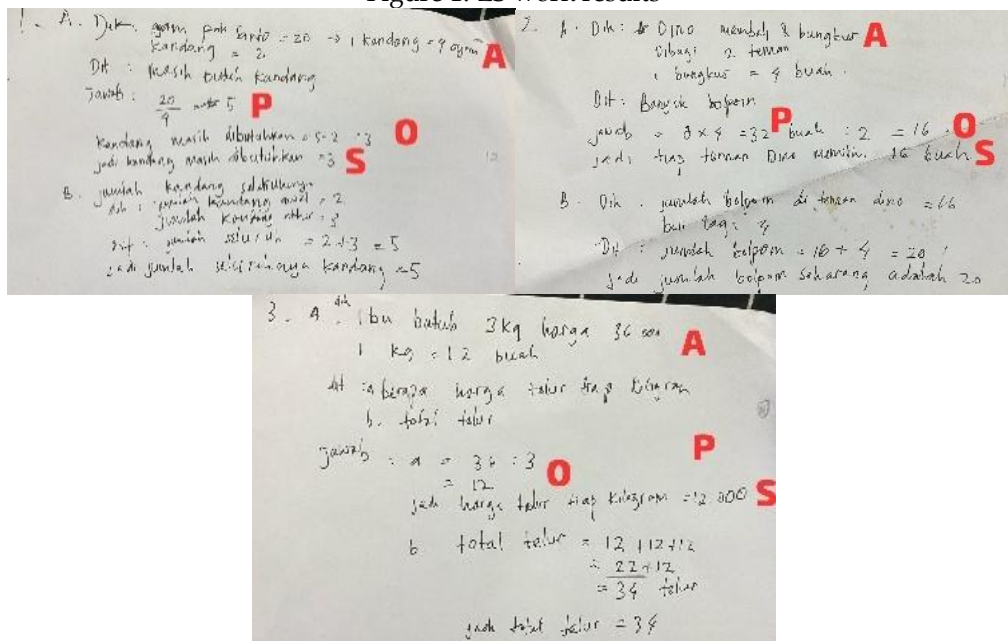 1. A. Dik. ayam pak = 20 → 1 kandang = 4 ayam A
kandang = 2
Dit : masih butuh kandang
Jawab : 20/4 = 5 P
kandang masih dibutuhkan = 5-2 = 3 O
jadi kandang masih dibutuhkan = 3 S
B. jumlah kandang seluruhnya
dik : jumlah kandang awal = 2
jumlah kandang akhir = 3
Dit : jumlah = 2+3 = 5
jadi jumlah seluruhnya kandang = 5
2. A. Dik : Dino membeli 8 bungkus A
dibagi 2 teman
1 bungkus = 4 buah.
Dit : Banyak bolpoin
jawab = 8 x 4 = 32 buah : 2 = 16 P O
jadi tiap teman Dino 16 buah S
B. Dik. jumlah bolpoin di teman dino = 16
beli lagi : 4
Dit : jumlah bolpoin = 16 + 4 = 20
jadi jumlah bolpoin sekarang adalah 20
3. A. dik Ibu butuh 3kg harga 36 000 A
1 kg = 12 buah
dit : a berapa harga telur tiap kilogram
b. total telur
P
Jawab : a = 36 : 3 O
= 12
jadi harga telur tiap kilogram = 12.000 S
b total telur = 12 + 12 + 12
= 22 + 12
= 34 telur
jadi total telur = 34